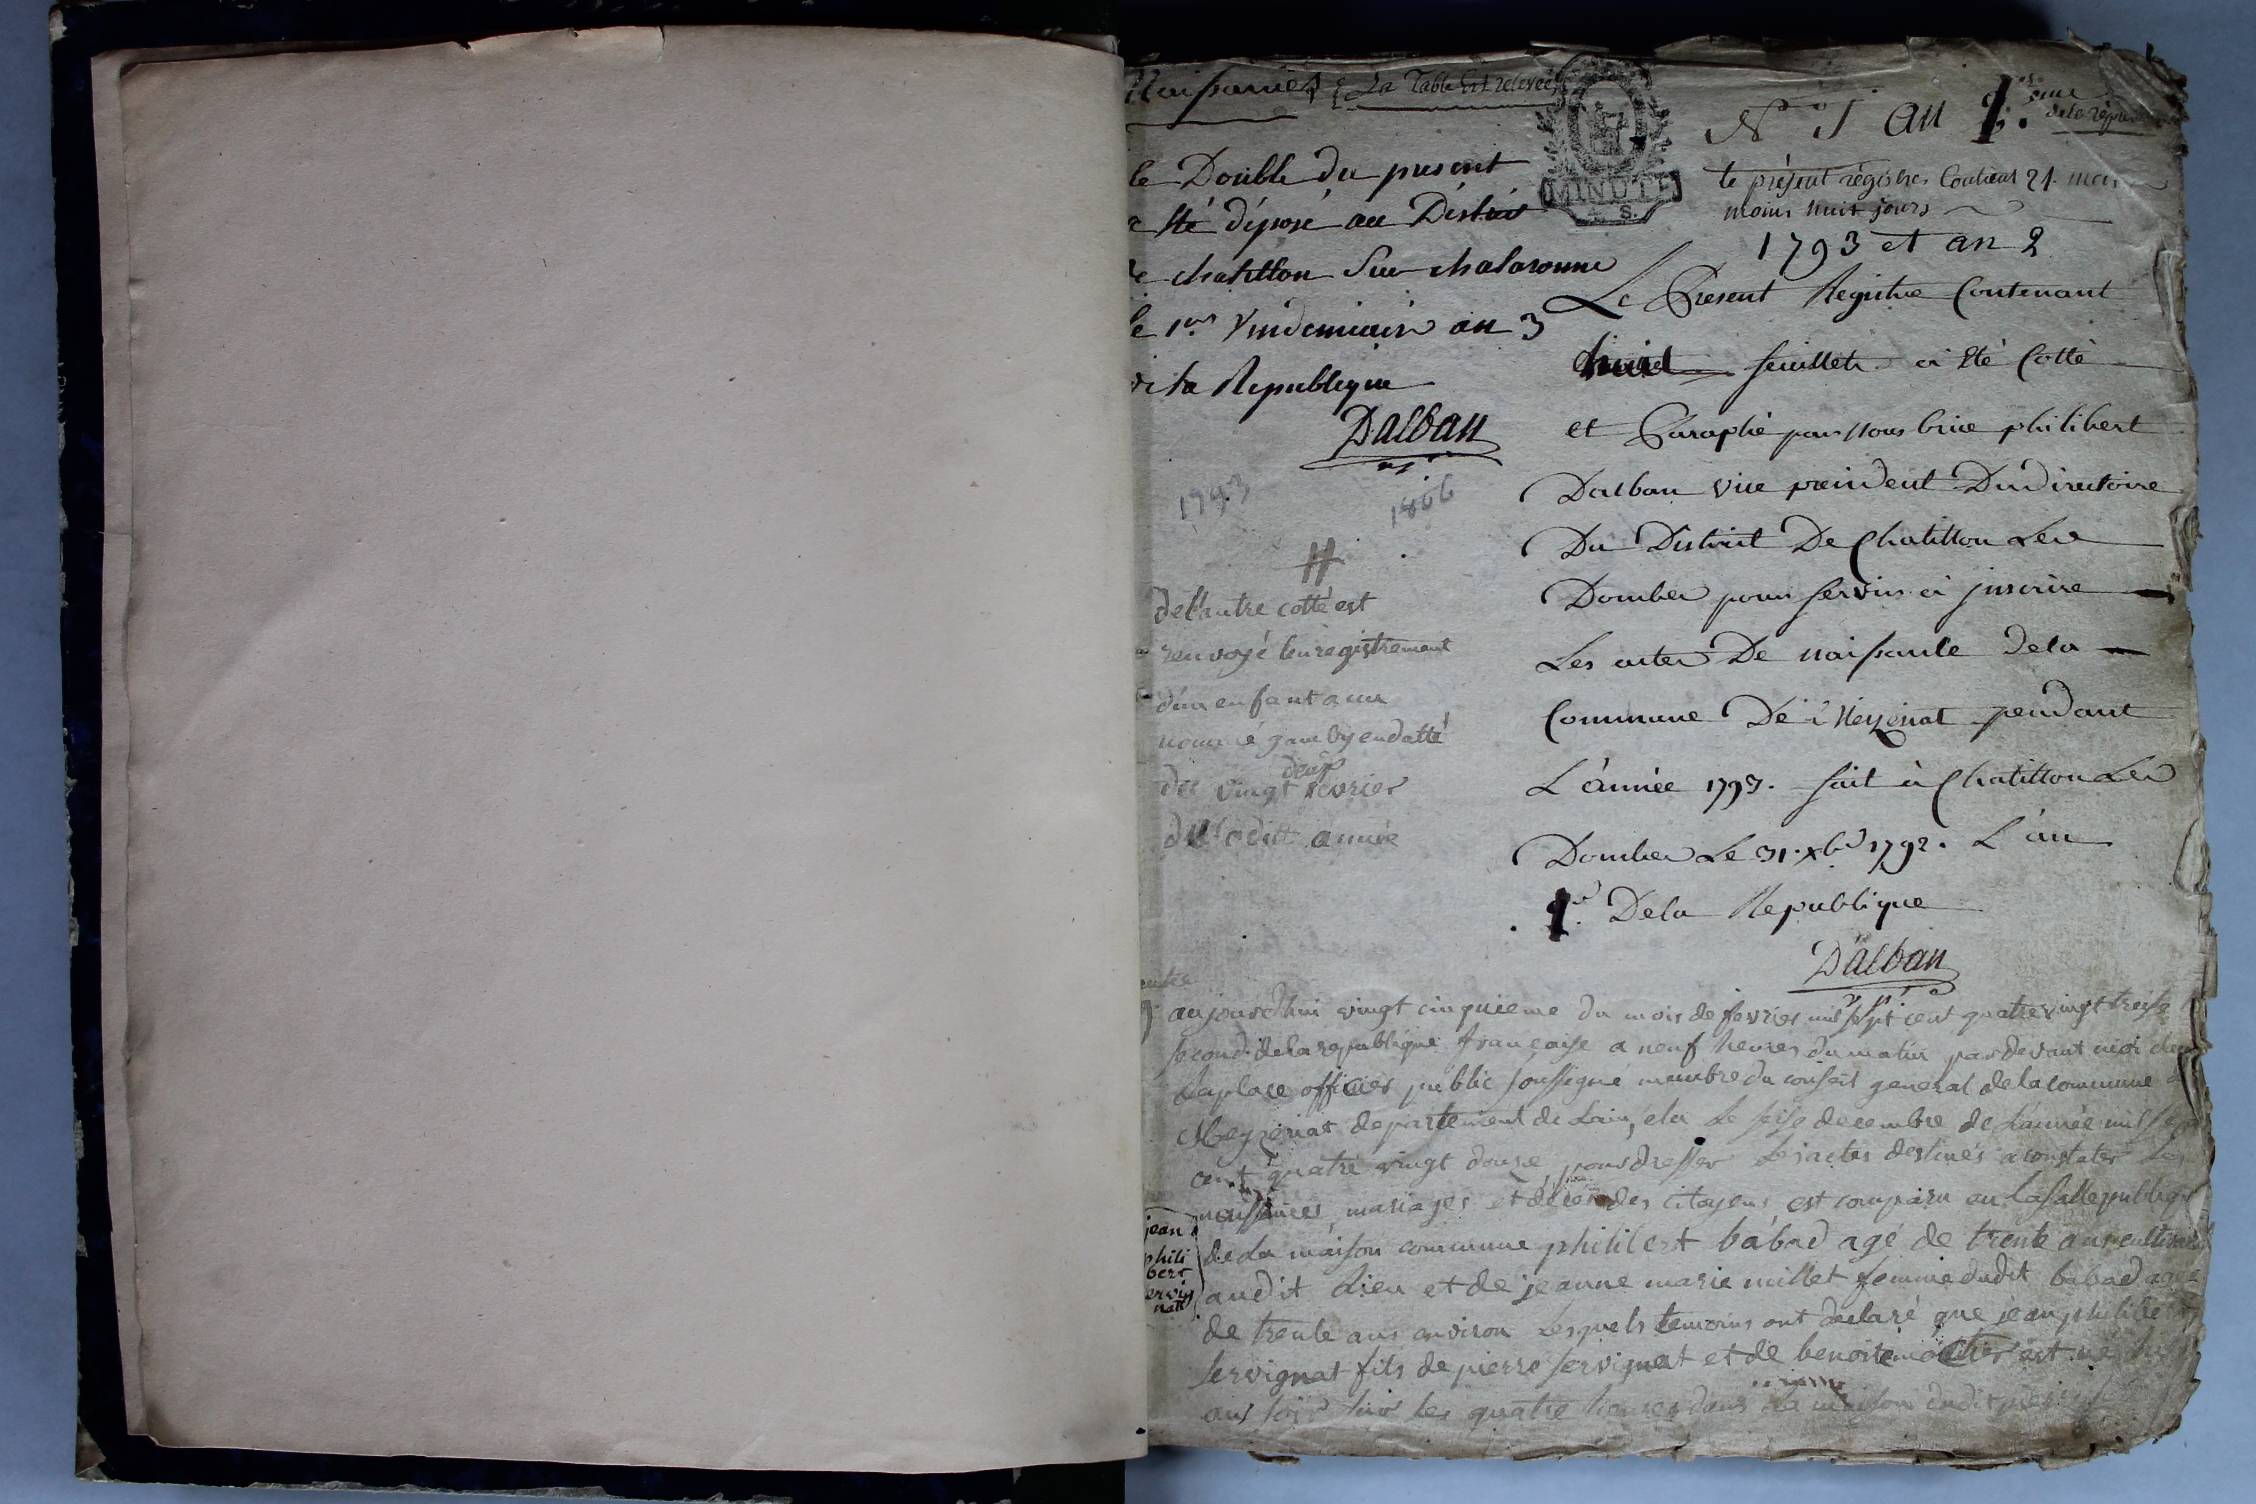 Naissances La Table Est relevée
le Double du present
a été déposé au District
de chatillon Sur chalaronne
le 1er Vindemiaire an 3
de la Republique
Dalban
1793 1806
de l'autre cotté est
renvoyé l'enregistrement
d'un enfant
nommé en datté
du vingt deux fevrier
de laditte année
MINUTE
S.
N° 1 an 1.er
de la répu
le présent régistres Contient 21. mois
moins huit jours
1793 et an 2
Le Present Registre Contenant
huit feuillets a été Cotté
et Paraphé par Nous brice philibert
Dalban vice président Du directoire
Du District De Chatillon Les
Dombes pour servir à jnscrire
Les actes De naissance de la
Commune De Neyzeriat pendant
L'année 1793. fait à Chatillon Les
Dombes Le 31. xbre 1792. L'an
1er De la Republique
Dalban
aujourdhui vingt cinquieme du mois de fevrier mil sept cent quatre vingt treise
second de la republique française a neuf heures du matin par devant moi
Laplace officier public soussigné membre du conseil general de la commune
departement de Lain, elu le seise decembre de l'année mil sept
cent quatre vingt douze pour dresser les actes destinés a constater les
naissances mariages et décés des citoyens est comparu en la salle publique
jean
phili
bert
servig
nat
de la maison commune philibert babad agé de trente ans cultivateur
audit Lieu et de jeanne marie millet femme dudit babad agée
de trente ans environ Lesquels temoins ont declaré que jean philibert
servignat fils de pierre servignat et de benoite est né
les quatre heures dans la maison dudit